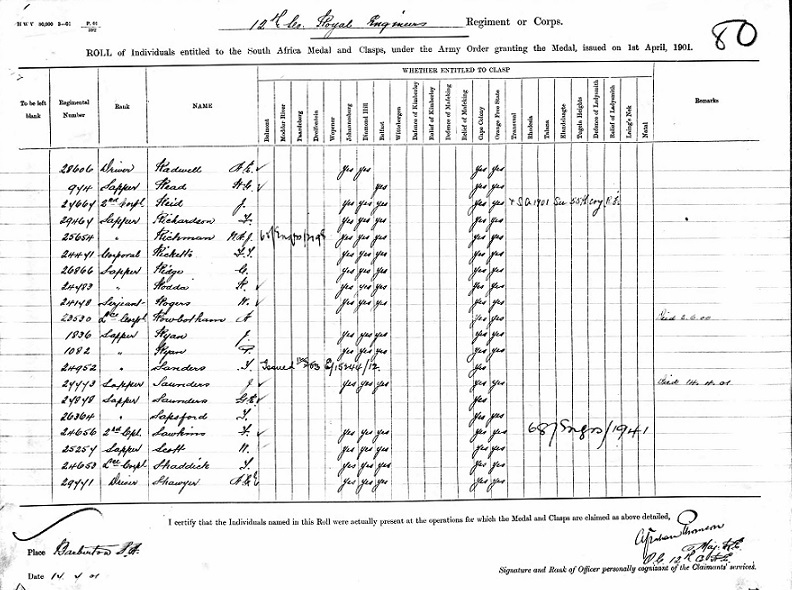 H W V 50,000 2—01 P. 01
12th Co. Royal Engineers Regiment or Corps. 80
ROLL of Individuals entitled to the South Africa Medal and Clasps, under the Army Order granting the Medal, issued on 1st April, 1901.
WHETHER ENTITLED TO CLASP
To be left blank Regimental Number Rank NAME Belmont Modder River Paardeberg Dreifontein Wepener Johannesburg Diamond Hill Belfast Wittebergen Defence of Kimberley Relief of Kimberley Defence of Mafeking Relief of Mafeking Cape Colony Orange Free State Transvaal Rhodesia Talana Elandslaagte Tugela Heights Defence of Ladysmith Relief of Ladysmith Laing's Nek Natal Remarks
28606 Driver Radwell A.E. ✓ yes yes yes yes
974 Sapper Read H.C. ✓ yes yes yes
27664 2nd Corpl Reid J. yes yes yes yes yes + S A 1901 See 55th coy R.E.
29464 Sapper Richardson F. yes yes yes yes yes
25654 " Rickman W.A.J. 68/Engrs/ yes yes yes yes yes
24471 Corporal Ricketts F.T. yes yes yes yes yes
26866 Sapper Ridge C. yes yes yes yes yes
24783 " Rodda R. ✓ yes yes yes yes yes
24148 Serjeant Rogers W. ✓ yes yes yes yes yes
23530 Lce Corpl Rowbotham A yes yes Died 2.6.00
1836 Sapper Ryan J. yes yes yes yes yes
1082 " Ryan P. yes yes yes yes yes
24952 " Sanders T. Issued 15244/12 yes
27773 Sapper Saunders J. ✓ yes yes yes yes yes Died 14.4.01
27848 Sapper Saunders G.E. ✓ yes
26364 " Sapsford T. yes yes
24656 2nd Cpl. Sawkins F. ✓ yes yes yes yes yes 68/Engrs/1941
25257 Sapper Scott W. yes yes yes yes yes
24653 Lce Corpl Shaddick T. yes yes yes yes yes
29771 Driver Shawyer A.E. yes yes yes yes yes
I certify that the Individuals named in this Roll were actually present at the operations for which the Medal and Clasps are claimed as above detailed,
Place Barberton S.A. Graham Thomson
Maj. R.E.
O.C. 12th Co R.E.
Date 14 4 01 Signature and Rank of Officer personally cognizant of the Claimants' services.